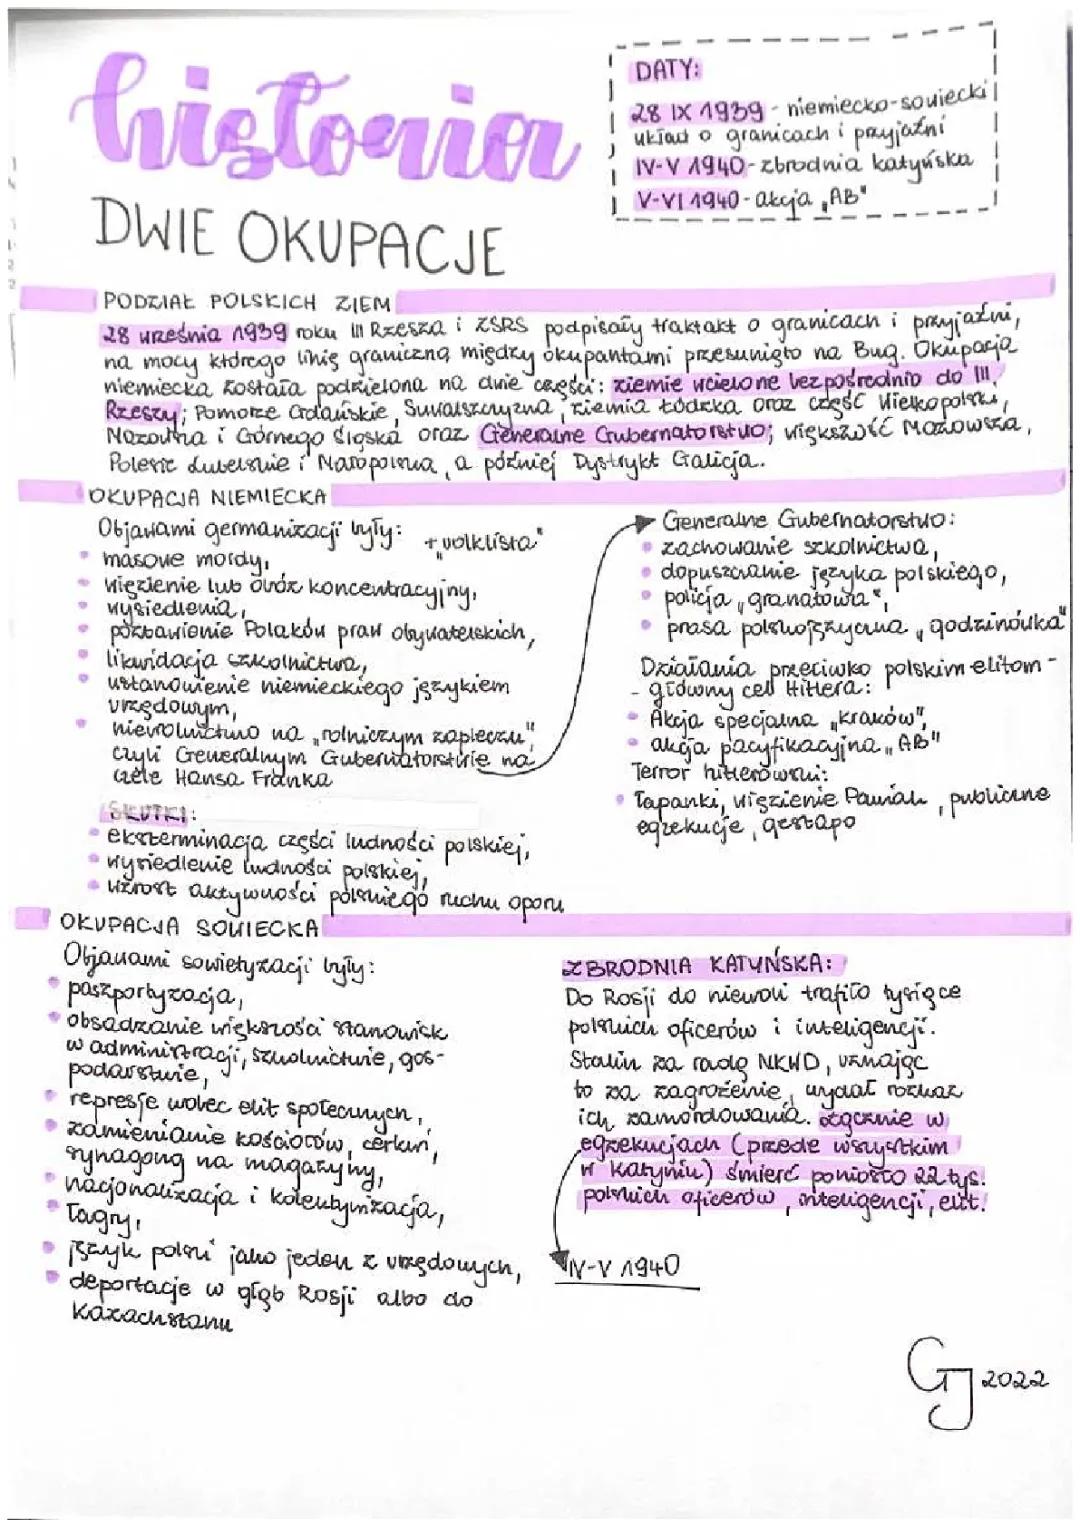 historia
DWIE OKUPACJE
DATY:
28 IX 1939 - niemiecko-sowiecki
układ o granicach i przyjaźni
IV-V 1940 - zbrodnia katyńska
V-VI 1940 - akcja „AB"
PODZIAŁ POLSKICH ZIEM
28 września 1939 roku III Rzesza i ZSRS podpisały traktakt o granicach i przyjaźni,
na mocy którego linię graniczną między okupantami przesunięto na Bug. Okupacja
niemiecka została podzielona na dwie części: ziemie wcielone bezpośrednio do III
Rzeszy; Pomorze Gdańskie, Suwalszczyzna, ziemia Łódzka oraz część Wielkopolski,
Mazowsza i Górnego Śląska oraz Generalne Gubernatorstwo; większość Mazowsza,
Polesie Lubelskie i Małopolska, a później Dystrykt Galicja.
OKUPACJA NIEMIECKA
Objawami germanizacji były: + „volklista"
• masowe mordy,
• więzienie lub obóz koncentracyjny,
• wysiedlenia,
• pozbawienie Polaków praw obywatelskich,
• likwidacja szkolnictwa,
• ustanowienie niemieckiego językiem
urzędowym,
• niewolnictwo na „rolniczym zapleczu",
czyli Generalnym Gubernatorstwie na
czele Hansa Franka
SKUTKI:
• eksterminacja części ludności polskiej,
• wysiedlenie ludności polskiej,
• wzrost aktywności polskiego ruchu oporu
Generalne Gubernatorstwo:
• zachowanie szkolnictwa,
• dopuszczanie języka polskiego,
• policja „granatowa",
• prasa polskojęzyczna „godzinówka"
Działania przeciwko polskim elitom -
- główny cel Hitlera:
• Akcja specjalna „Kraków",
• akcja pacyfikacyjna „AB"
Terror hitlerowski:
• Łapanki, więzienie Pawiak, publiczne
egzekucje, gestapo
OKUPACJA SOWIECKA
Objawami sowietyzacji były:
• paszportyzacja,
• obsadzanie większości stanowisk
w administracji, szkolnictwie, gos-
podarstwie,
• represje wobec elit społecznych,
• zamienianie kościołów, cerkwi,
synagog na magazyny,
• nacjonalizacja i kolektywizacja,
• Łagry,
• język polski jako jeden z urzędowych,
• deportacje w głąb Rosji albo do
Kazachstanu
ZBRODNIA KATYŃSKA:
Do Rosji do niewoli trafiło tysiące
polskich oficerów i inteligencji.
Stalin za radą NKWD, uznając
to za zagrożenie, wydał rozkaz
ich zamordowania. Łącznie w
egzekucjach (przede wszystkim
w Katyniu) śmierć poniosło 22 tys.
polskich oficerów, inteligencji, elit.
IV-V 1940
GJ 2022